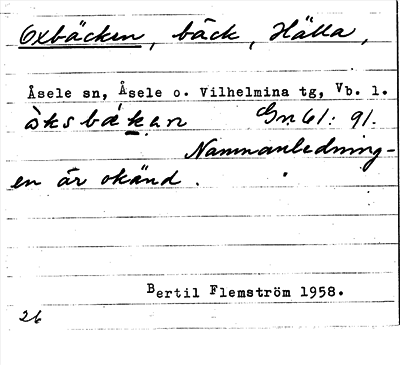 Oxbäcken, bäck, Hälla,
Åsele sn, Åsele o. Vilhelmina tg, Vb. l.
òksbä́kan Gn 61: 91.
Namnanledning-
en är okänd.
Bertil Flemström 1958.
26